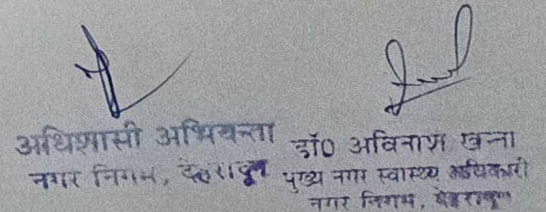 अधिशासी अभियन्ता
नगर निगम, देहरादून
डॉ0 अविनाश खन्ना
मुख्य नगर स्वास्थ्य अधिकारी
नगर निगम, देहरादून